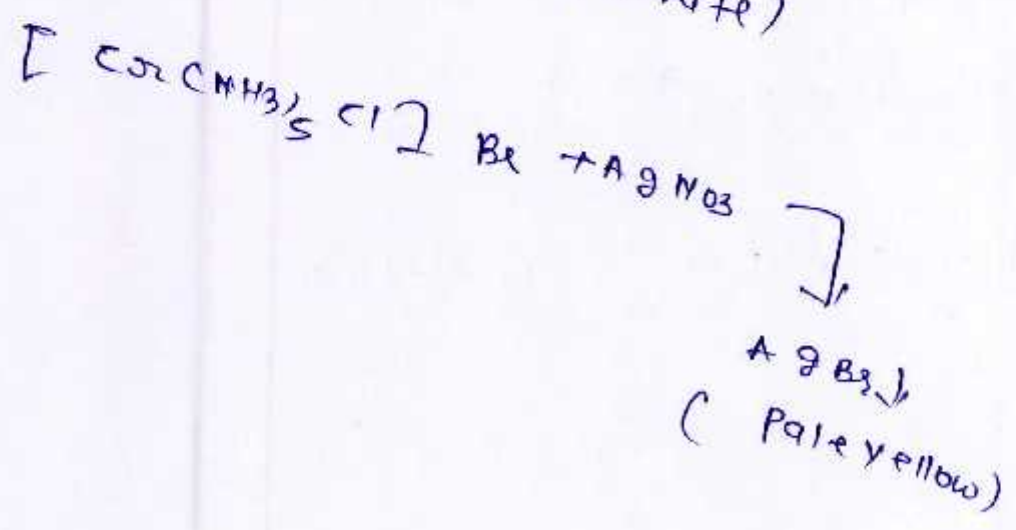 [ Cr (NH3)5 Cl ] Br + AgNO3
AgBr ↓
( Pale yellow)